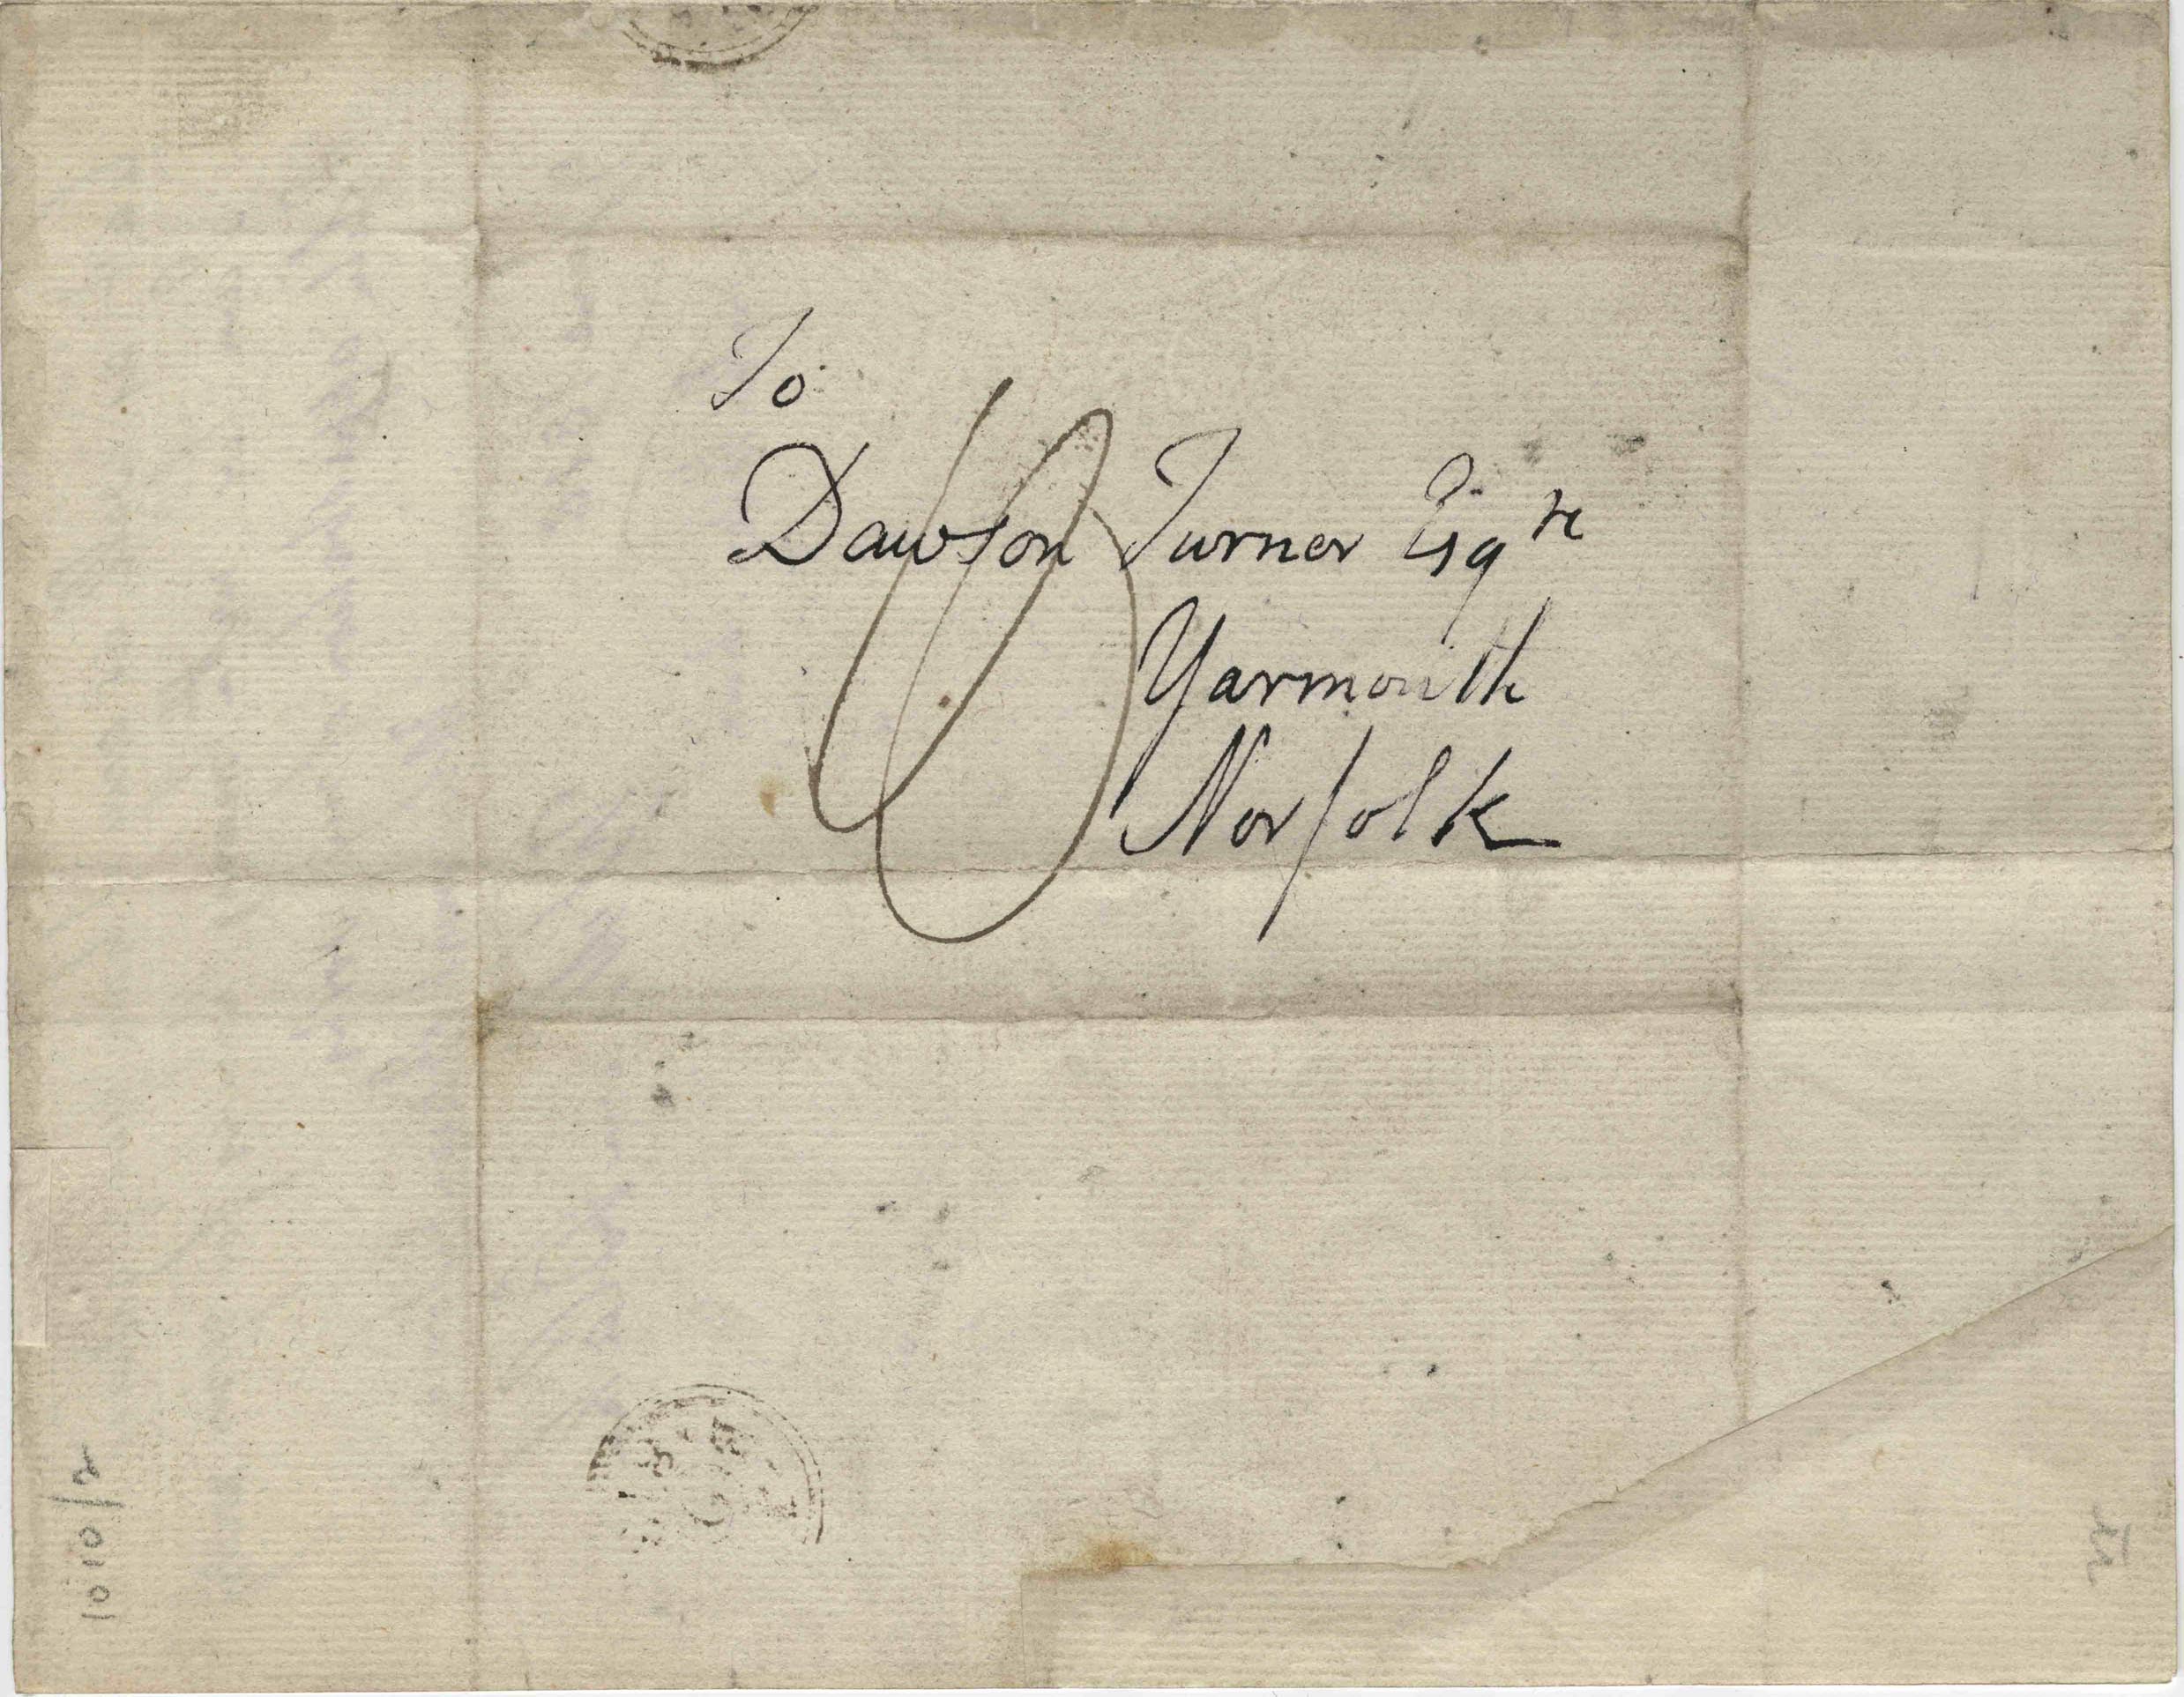 To
Dawson Turner Esqre
Yarmouth
Norfolk
1010/2